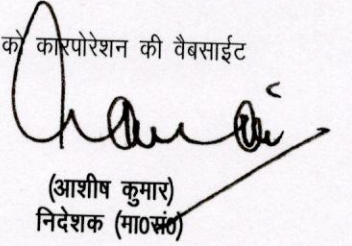 को कारपोरेशन की वैबसाईट
(आशीष कुमार)
निदेशक (मा0सं0)